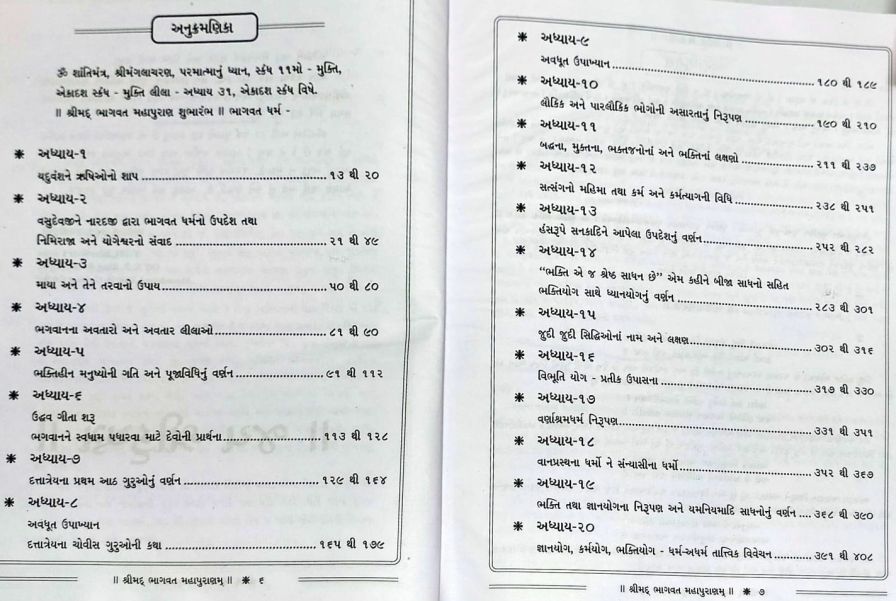 અનુક્રમણિકા
ૐ શાંતિમંત્ર, શ્રીમંગલાચરણ, પરમાત્માનું ધ્યાન, સ્કંધ ૧૧મો - મુક્તિ,
એકાદશ સ્કંધ - મુક્તિ લીલા - અધ્યાય ૩૧, એકાદશ સ્કંધ વિષે.
॥ શ્રીમદ્ ભાગવત મહાપુરાણ શુભારંભ ॥ ભાગવત ધર્મ -
❋ અધ્યાય-૧
યદુવંશને ઋષિઓનો શાપ ........ ૧૩ થી ૨૦
❋ અધ્યાય-૨
વસુદેવજીને નારદજી દ્વારા ભાગવત ધર્મનો ઉપદેશ તથા
નિમિરાજા અને યોગેશ્વરનો સંવાદ ........ ૨૧ થી ૪૯
❋ અધ્યાય-૩
માયા અને તેને તરવાનો ઉપાય ........ ૫૦ થી ૮૦
❋ અધ્યાય-૪
ભગવાનના અવતારો અને અવતાર લીલાઓ ........ ૮૧ થી ૯૦
❋ અધ્યાય-૫
ભક્તિહીન મનુષ્યોની ગતિ અને પૂજાવિધિનું વર્ણન ........ ૯૧ થી ૧૧૨
❋ અધ્યાય-૬
ઉદ્ધવ ગીતા શરૂ
ભગવાનને સ્વધામ પધારવા માટે દેવોની પ્રાર્થના ........ ૧૧૩ થી ૧૨૮
❋ અધ્યાય-૭
દત્તાત્રેયના પ્રથમ આઠ ગુરુઓનું વર્ણન ........ ૧૨૯ થી ૧૬૪
❋ અધ્યાય-૮
અવધૂત ઉપાખ્યાન
દત્તાત્રેયના ચોવીસ ગુરુઓની કથા ........ ૧૬૫ થી ૧૭૯
॥ શ્રીમદ્ ભાગવત મહાપુરાણમ્ ॥ ❋ ૬
❋ અધ્યાય-૯
અવધૂત ઉપાખ્યાન ........ ૧૮૦ થી ૧૮૯
❋ અધ્યાય-૧૦
લૌકિક અને પારલૌકિક ભોગોની અસારતાનું નિરૂપણ ........ ૧૯૦ થી ૨૧૦
❋ અધ્યાય-૧૧
બદ્ધના, મુક્તના, ભક્તજનોનાં અને ભક્તિનાં લક્ષણો ........ ૨૧૧ થી ૨૩૭
❋ અધ્યાય-૧૨
સત્સંગનો મહિમા તથા કર્મ અને કર્મત્યાગની વિધિ ........ ૨૩૮ થી ૨૫૧
❋ અધ્યાય-૧૩
હંસરૂપે સનકાદિને આપેલા ઉપદેશનું વર્ણન ........ ૨૫૨ થી ૨૮૨
❋ અધ્યાય-૧૪
“ભક્તિ એ જ શ્રેષ્ઠ સાધન છે” એમ કહીને બીજા સાધનો સહિત
ભક્તિયોગ સાથે ધ્યાનયોગનું વર્ણન ........ ૨૮૩ થી ૩૦૧
❋ અધ્યાય-૧૫
જુદી જુદી સિદ્ધિઓનાં નામ અને લક્ષણ ........ ૩૦૨ થી ૩૧૬
❋ અધ્યાય-૧૬
વિભૂતિ યોગ - પ્રતીક ઉપાસના ........ ૩૧૭ થી ૩૩૦
❋ અધ્યાય-૧૭
વર્ણાશ્રમધર્મ નિરૂપણ ........ ૩૩૧ થી ૩૫૧
❋ અધ્યાય-૧૮
વાનપ્રસ્થના ધર્મો ને સંન્યાસીના ધર્મો ........ ૩૫૨ થી ૩૬૭
❋ અધ્યાય-૧૯
ભક્તિ તથા જ્ઞાનયોગના નિરૂપણ અને યમનિયમાદિ સાધનોનું વર્ણન .... ૩૬૮ થી ૩૯૦
❋ અધ્યાય-૨૦
જ્ઞાનયોગ, કર્મયોગ, ભક્તિયોગ - ધર્મ-અધર્મ તાત્ત્વિક વિવેચન ........ ૩૯૧ થી ૪૦૮
॥ શ્રીમદ્ ભાગવત મહાપુરાણમ્ ॥ ❋ ૭